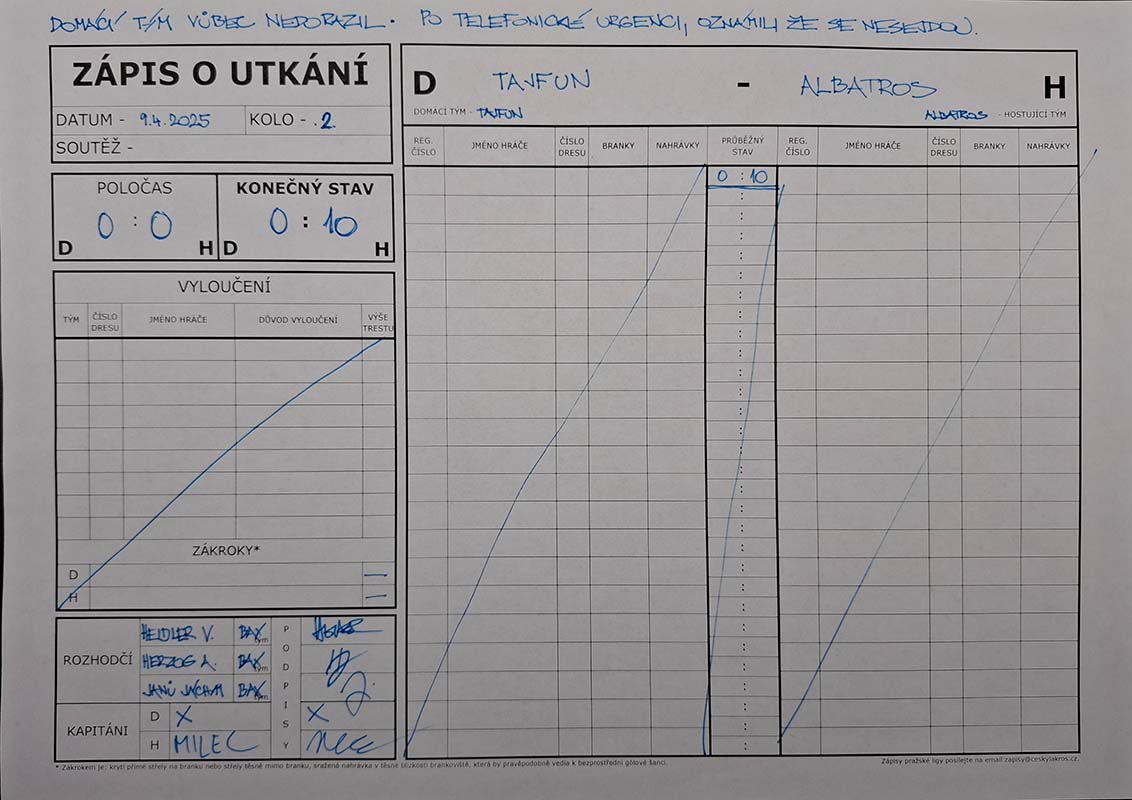 DOMÁCÍ TÝM VŮBEC NEDORAZIL. PO TELEFONICKÉ URGENCI, OZNÁMILI ŽE SE NESEJDOU.
ZÁPIS O UTKÁNÍ
DATUM - 9.4.2025 KOLO - .2.
SOUTĚŽ -
POLOČAS
0 : 0
D H
KONEČNÝ STAV
0 : 10
D H
VYLOUČENÍ
TÝM ČÍSLO DRESU JMÉNO HRÁČE DŮVOD VYLOUČENÍ VÝŠE TRESTU
ZÁKROKY*
D —
H —
ROZHODČÍ
HEIDLER V. BAX tým
HERZOG A. BAX tým
JANŮ JÁCHYM BAX tým
PODPISY
KAPITÁNI
D X X
H MILEC
D TAJFUN - ALBATROS H
DOMÁCÍ TÝM - TAJFUN ALBATROS - HOSTUJÍCÍ TÝM
REG. ČÍSLO JMÉNO HRÁČE ČÍSLO DRESU BRANKY NAHRÁVKY PRŮBĚŽNÝ STAV REG. ČÍSLO JMÉNO HRÁČE ČÍSLO DRESU BRANKY NAHRÁVKY
0 : 10
* Zákrokem je: krytí přímé střely na branku nebo střely těsně mimo branku, sražená nahrávka v těsné blízkosti brankoviště, která by pravěpodobně vedla k bezprostřední gólové šanci.
Zápisy pražské ligy posílejte na email zapisy@ceskylakros.cz.